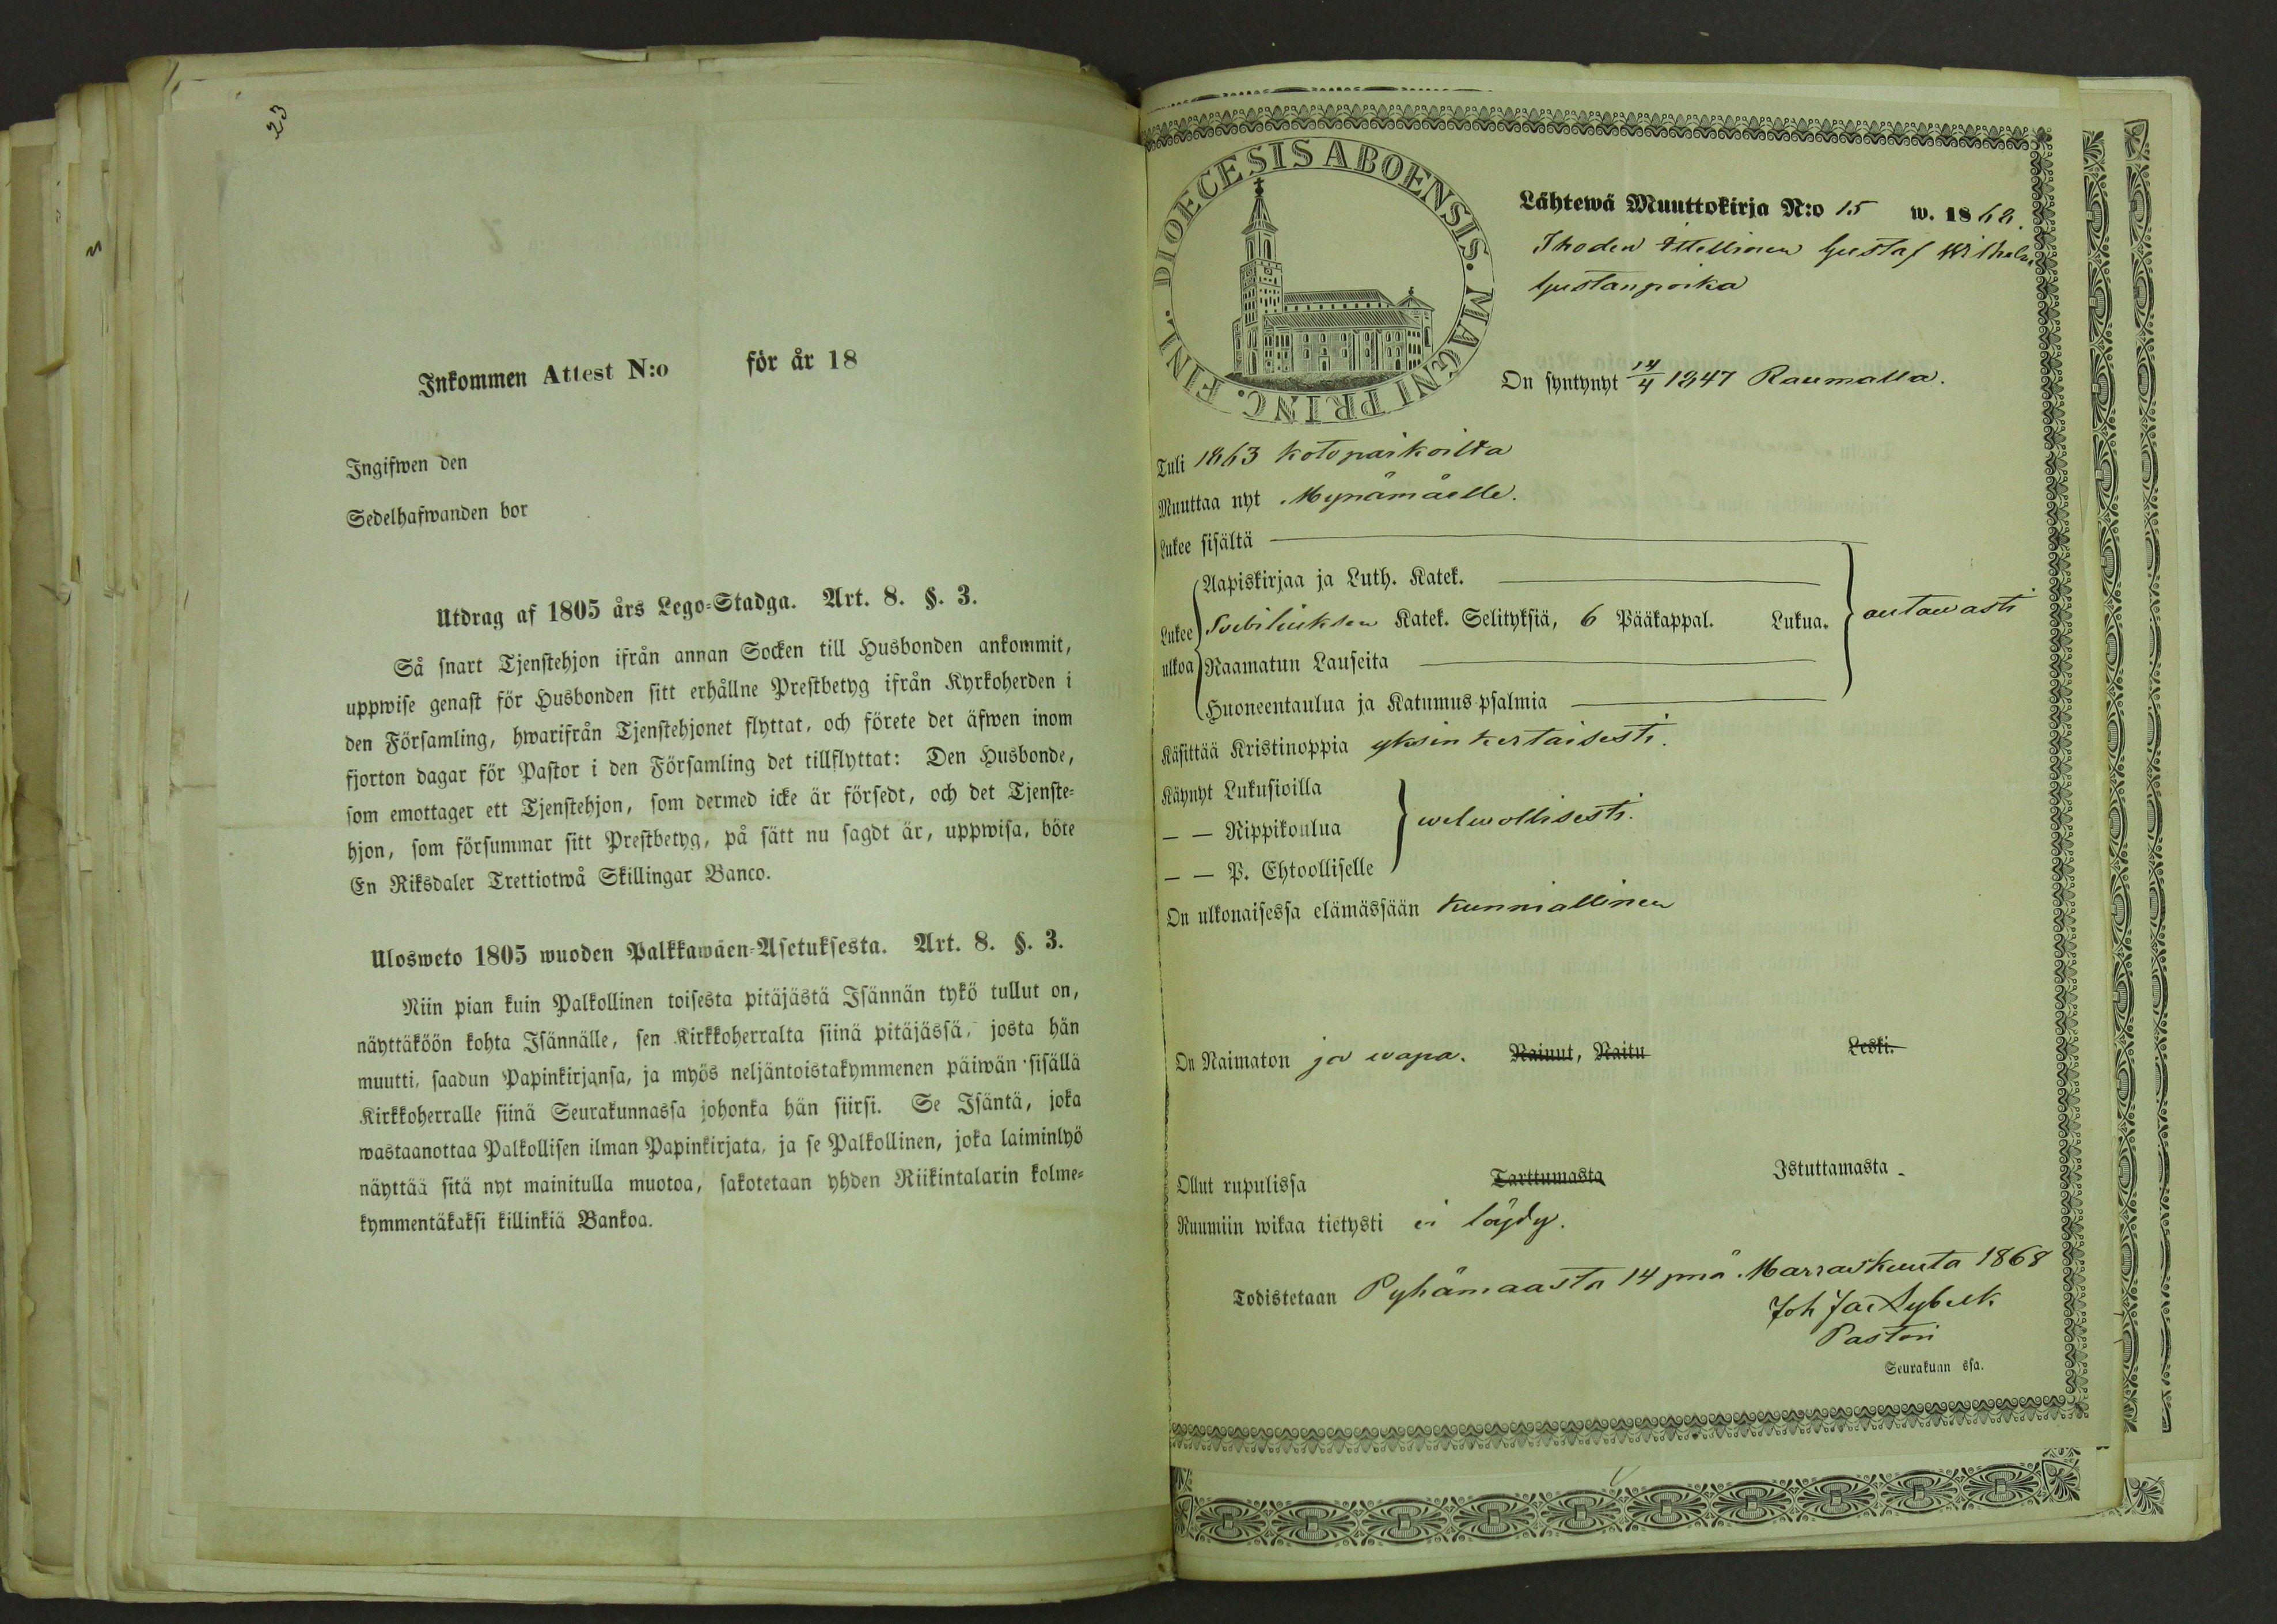 23
Inkommen Attest N:o för år 18
Ingifwen den
Sedelhafwanden bor
Utdrag af 1805 års Lego-Stadga. Art. 8. §. 3.
Så snart Tjenstehjon ifrån annan Socken till Husbonden ankommit,
uppwise genast för Husbonden sitt erhållne Prestbetyg ifrån Kyrkoherden i
den Församling, hwarifrån Tjenstehjonet flyttat, och förete det äfwen inom
fjorton dagar för Pastor i den Församling det tillflyttat: Den Husbonde,
som emottager ett Tjenstehjon, som dermed icke är försedt, och det Tjenste-
hjon, som försummar sitt Prestbetyg, på sätt nu sagdt är, uppwisa, böte
En Riksdaler Trettiotwå Skillingar Banco.
Ulosweto 1805 wuoden Palkkawäen-Asetuksesta. Art. 8. §. 3.
Niin pian kuin Palkollinen toisesta pitäjästä Isännän tykö tullut on,
näyttäköön kohta Isännälle, sen Kirkkoherralta siinä pitäjässä, josta hän
muutti, saadun Papinkirjansa, ja myös neljäntoistakymmenen päiwän sisällä
Kirkkoherralle siinä Seurakunnassa johonka hän siirsi. Se Isäntä, joka
wastaanottaa Palkollisen ilman Papinkirjata, ja se Palkollinen, joka laiminlyö
näyttää sitä nyt mainitulla muotoa, sakotetaan yhden Riikintalarin kolme-
kymmentäkaksi killinkiä Bankoa.
DIOECESIS ABOENSIS. MAGNI PRINC. FINL.
Lähtewä Muuttokirja N:o 15 w. 1868.
Ihoden Itellinen Gustaf Wilhelm
Gustanpoika
On syntynyt 14/4 1847 Raumalla.
Tuli 1863 kotopaikoilta
Muuttaa nyt Mynämäelle.
Lukee sisältä
Aapiskirjaa ja Luth. Katek.
Lukee Svebiliuksen Katek. Selityksiä, 6 Pääkappal. Lukua. autawasti
ulkoa Raamatun Lauseita
Huoneentaulua ja Katumus-psalmia
Käsittää Kristinoppia yksinkertaisesti.
Käynyt Lukusioilla
— — Rippikoulua welwollisesti.
— — P. Ehtoolliselle
On ulkonaisessa elämässään kunniallinen
On Naimaton ja wapa. Nainut, Naitu Leski.
Ollut rupulissa Tarttumasta Istuttamasta -
Ruumiin wikaa tietysti ei löydy.
Todistetaan Pyhämaasta 14 pnä Marraskuuta 1868
Joh Jac
Pastori
Seurakunn ssa.